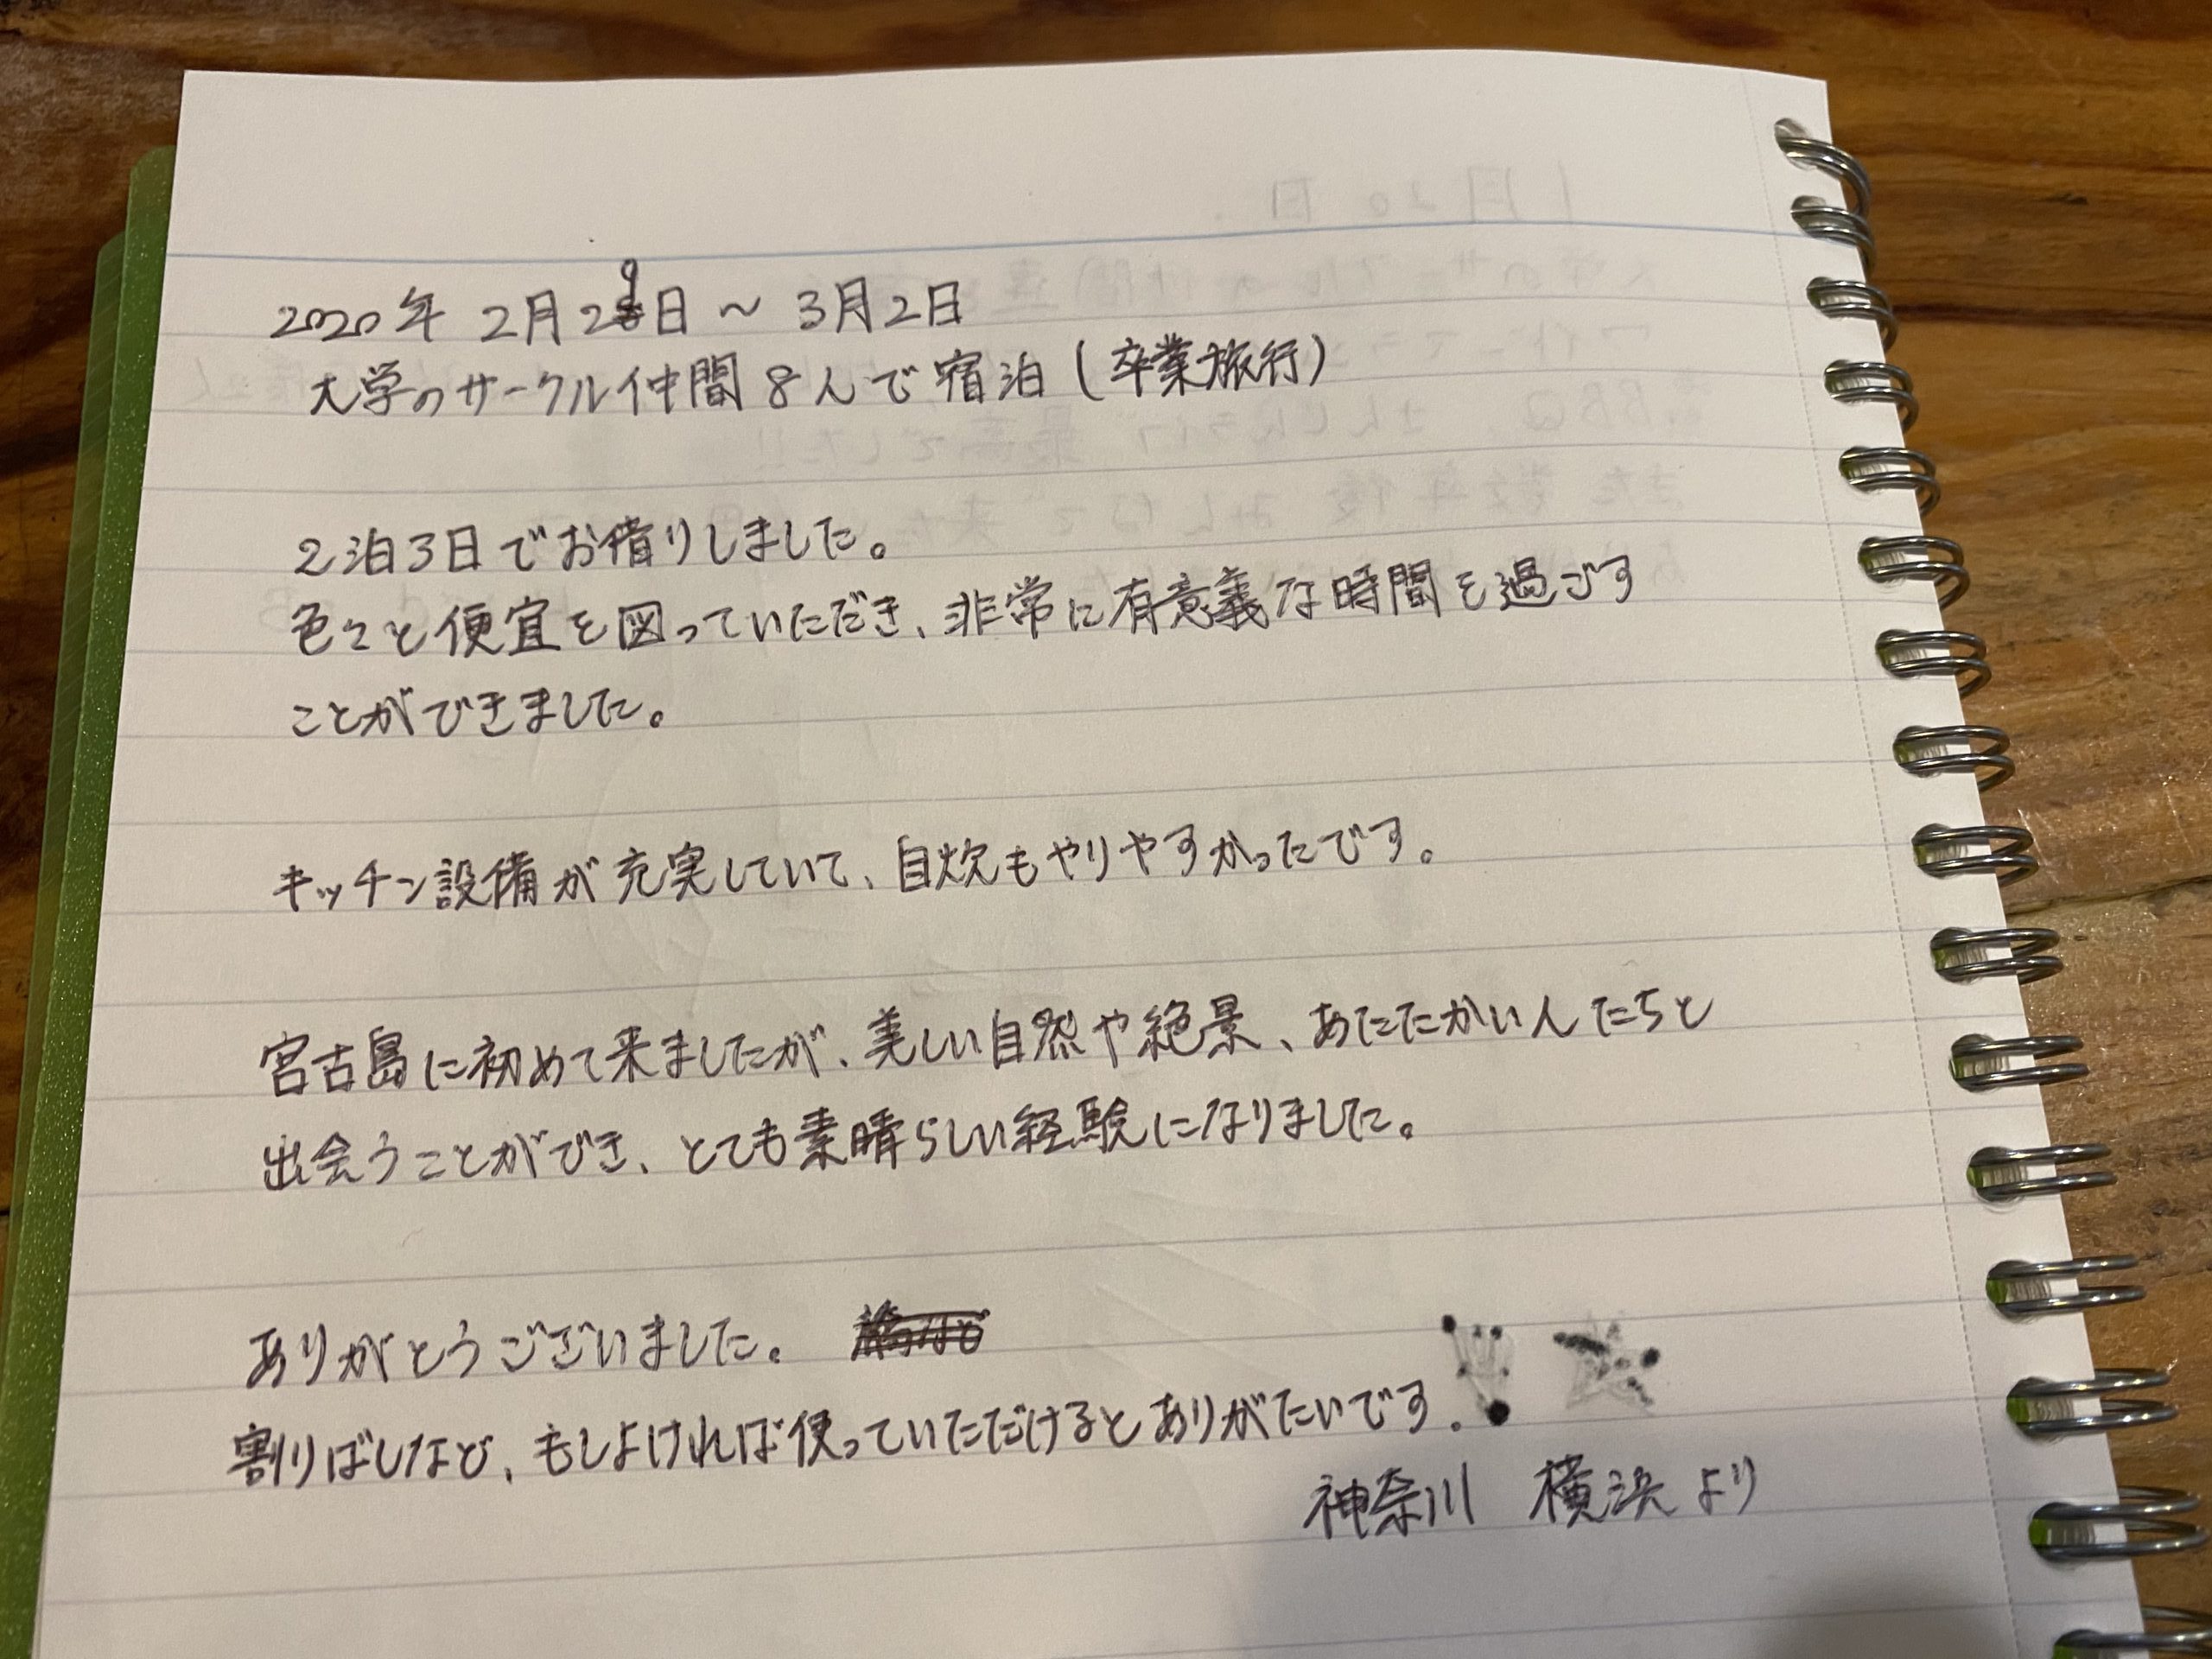 2020年 2月29日 ~ 3月2日
大学のサークル仲間8人で宿泊(卒業旅行)
2泊3日でお借りしました。
色々と便宜を図っていただき、非常に有意義な時間を過ごす
ことができました。
キッチン設備が充実していて、自炊もやりやすかったです。
宮古島に初めて来ましたが、美しい自然や絶景、あたたかい人たちと
出会うことができ、とても素晴らしい経験になりました。
ありがとうございました。
割りばしなど、もしよければ使っていただけるとありがたいです。
神奈川 横浜より